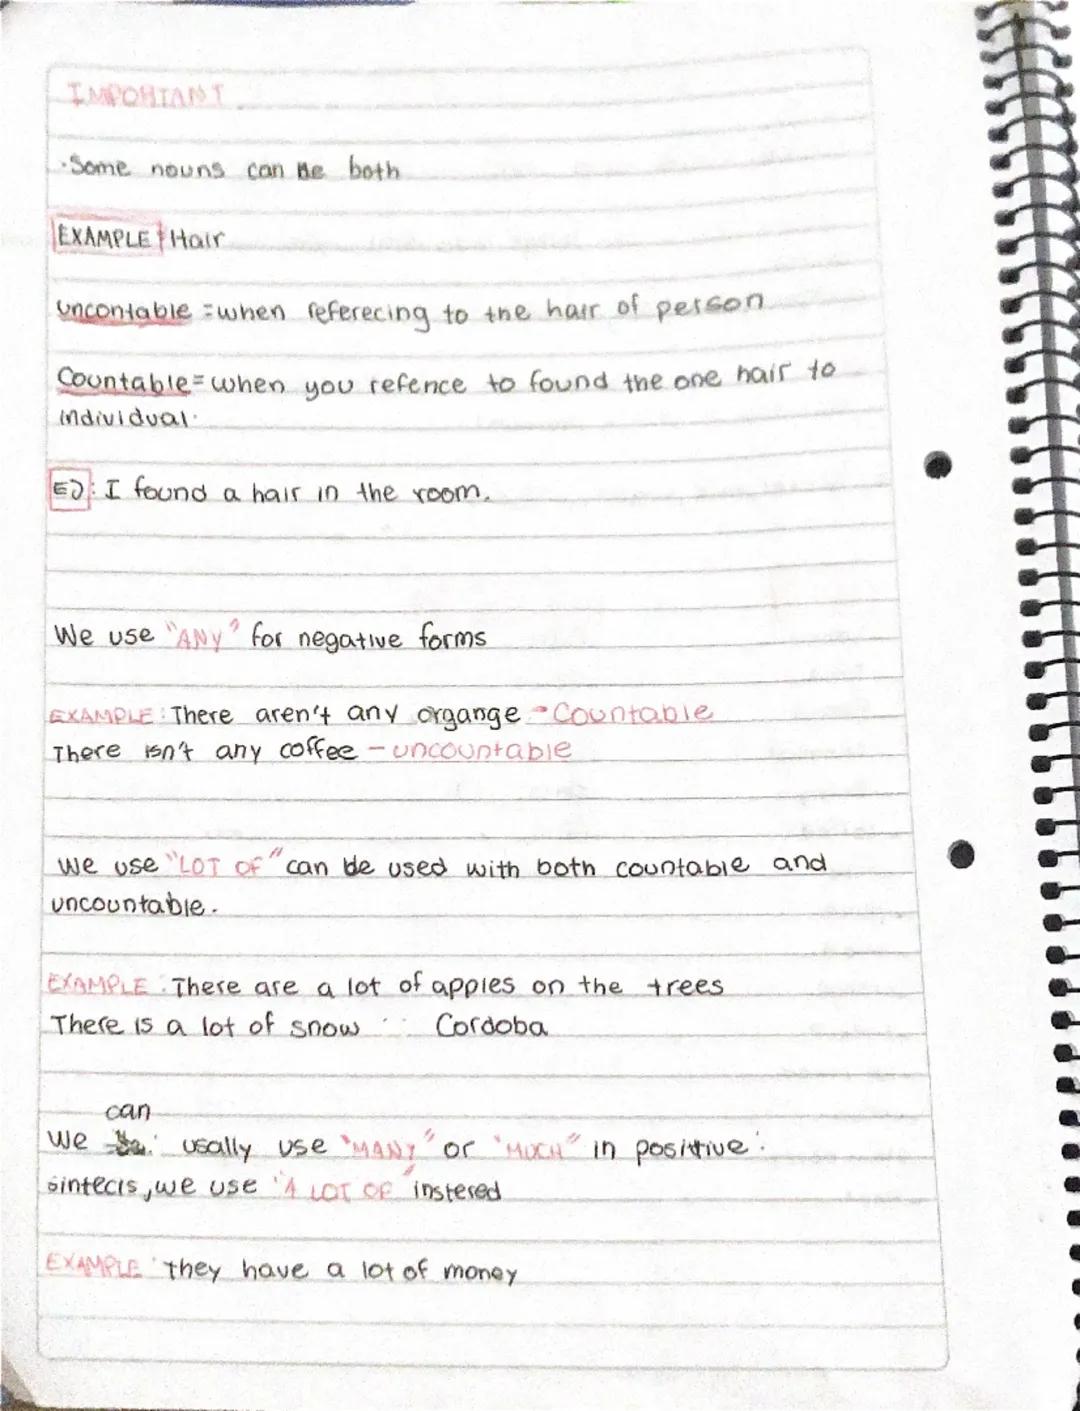 IMPORTANT
·Some nouns can be both
EXAMPLE: Hair
uncontable = when referecing to the hair of person
Countable = when you refence to found the one hair to
individual.
EJ: I found a hair in the room.
We use "ANY" for negative forms
EXAMPLE: There aren't any organge - Countable
There isn't any coffee - uncountable
We use "LOT OF" can be used with both countable and
uncountable.
EXAMPLE: There are a lot of apples on the trees
There is a lot of snow Cordoba
can
We usally use "MANY" or "MUCH" in positive
sintecis, we use "A LOT OF" instered
EXAMPLE: they have a lot of money